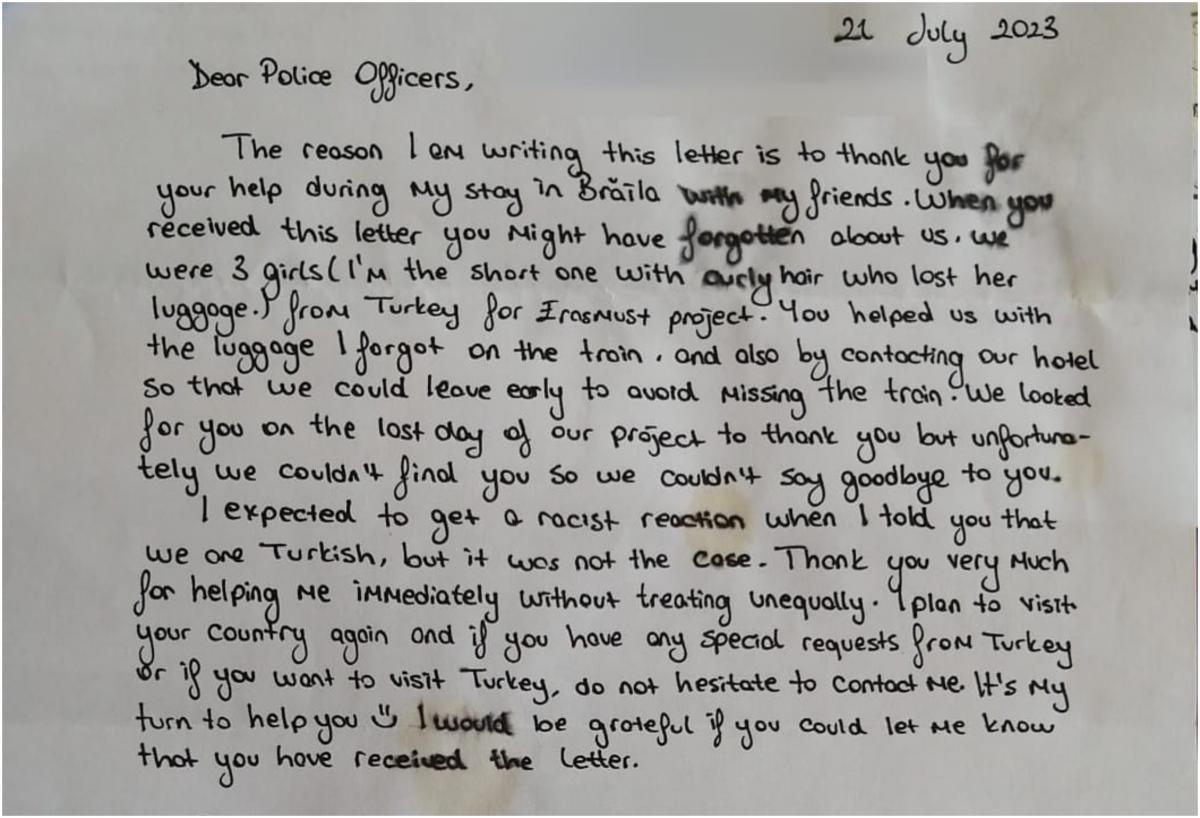 21 July 2023
Dear Police Officers,
The reason I am writing this letter is to thank you for
your help during my stay in Brăila with my friends. When you
received this letter you might have forgotten about us. we
were 3 girls (I'm the short one with curly hair who lost her
luggage.) from Turkey for Erasmust project. You helped us with
the luggage I forgot on the train. and also by contacting our hotel
so that we could leave early to avoid missing the train. We looked
for you on the last day of our project to thank you but unfortuna-
tely we couldn't find you so we couldn't say goodbye to you.
I expected to get a racist reaction when I told you that
we are Turkish, but it was not the case. Thank you very much
for helping me immediately without treating unequally. I plan to visit
your country again and if you have any special requests from Turkey
or if you want to visit Turkey, do not hesitate to contact me. It's my
turn to help you ☺ I would be grateful if you could let me know
that you have received the letter.